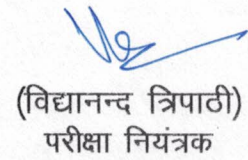 (विद्यानन्द त्रिपाठी)
परीक्षा नियंत्रक